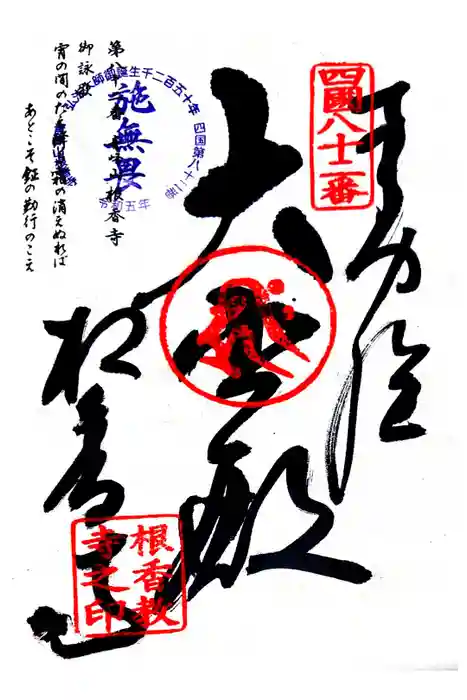 奉拝
大悲殿
根香寺
四國八十二番
根香教
寺之印
弘法大師御誕生千二百五十年 四国第八十二番
施無畏
令和五年
第八十二番 青峰山根香寺
御詠歌
宵の間のたえふる霜の消えぬれば
あとこそ鉦の勤行のこえ